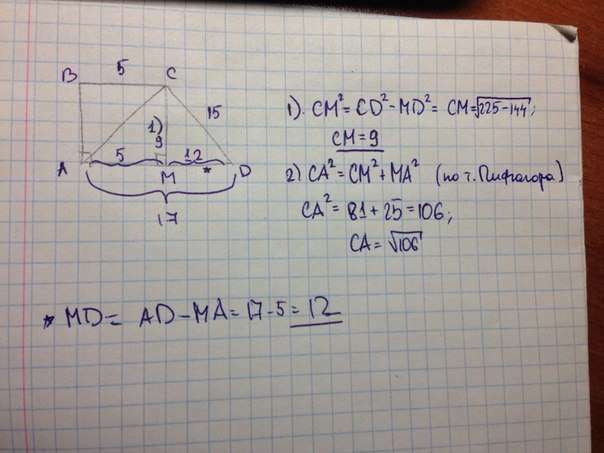 5
B C
1)
9
15
A 5 M 12 * D
17
1). CM² = CD² - MD² = CM = √225-144;
CM = 9
2) CA² = CM² + MA² (по т. Пифагора)
CA² = 81 + 25 = 106;
CA = √106
* MD = AD - MA = 17 - 5 = 12